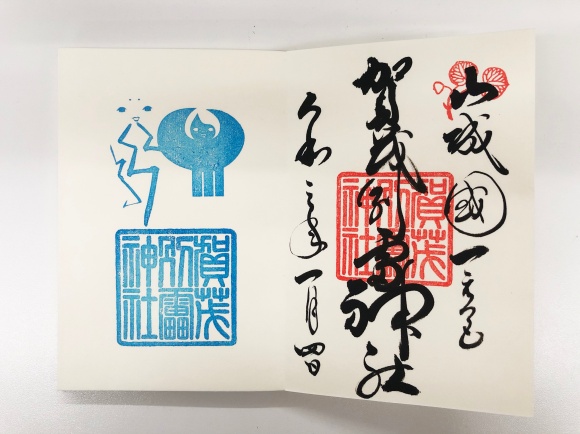 山城國一之宮
賀茂別雷神社
令和三年一月四日
賀茂
別雷
神社
賀茂
別雷
神社